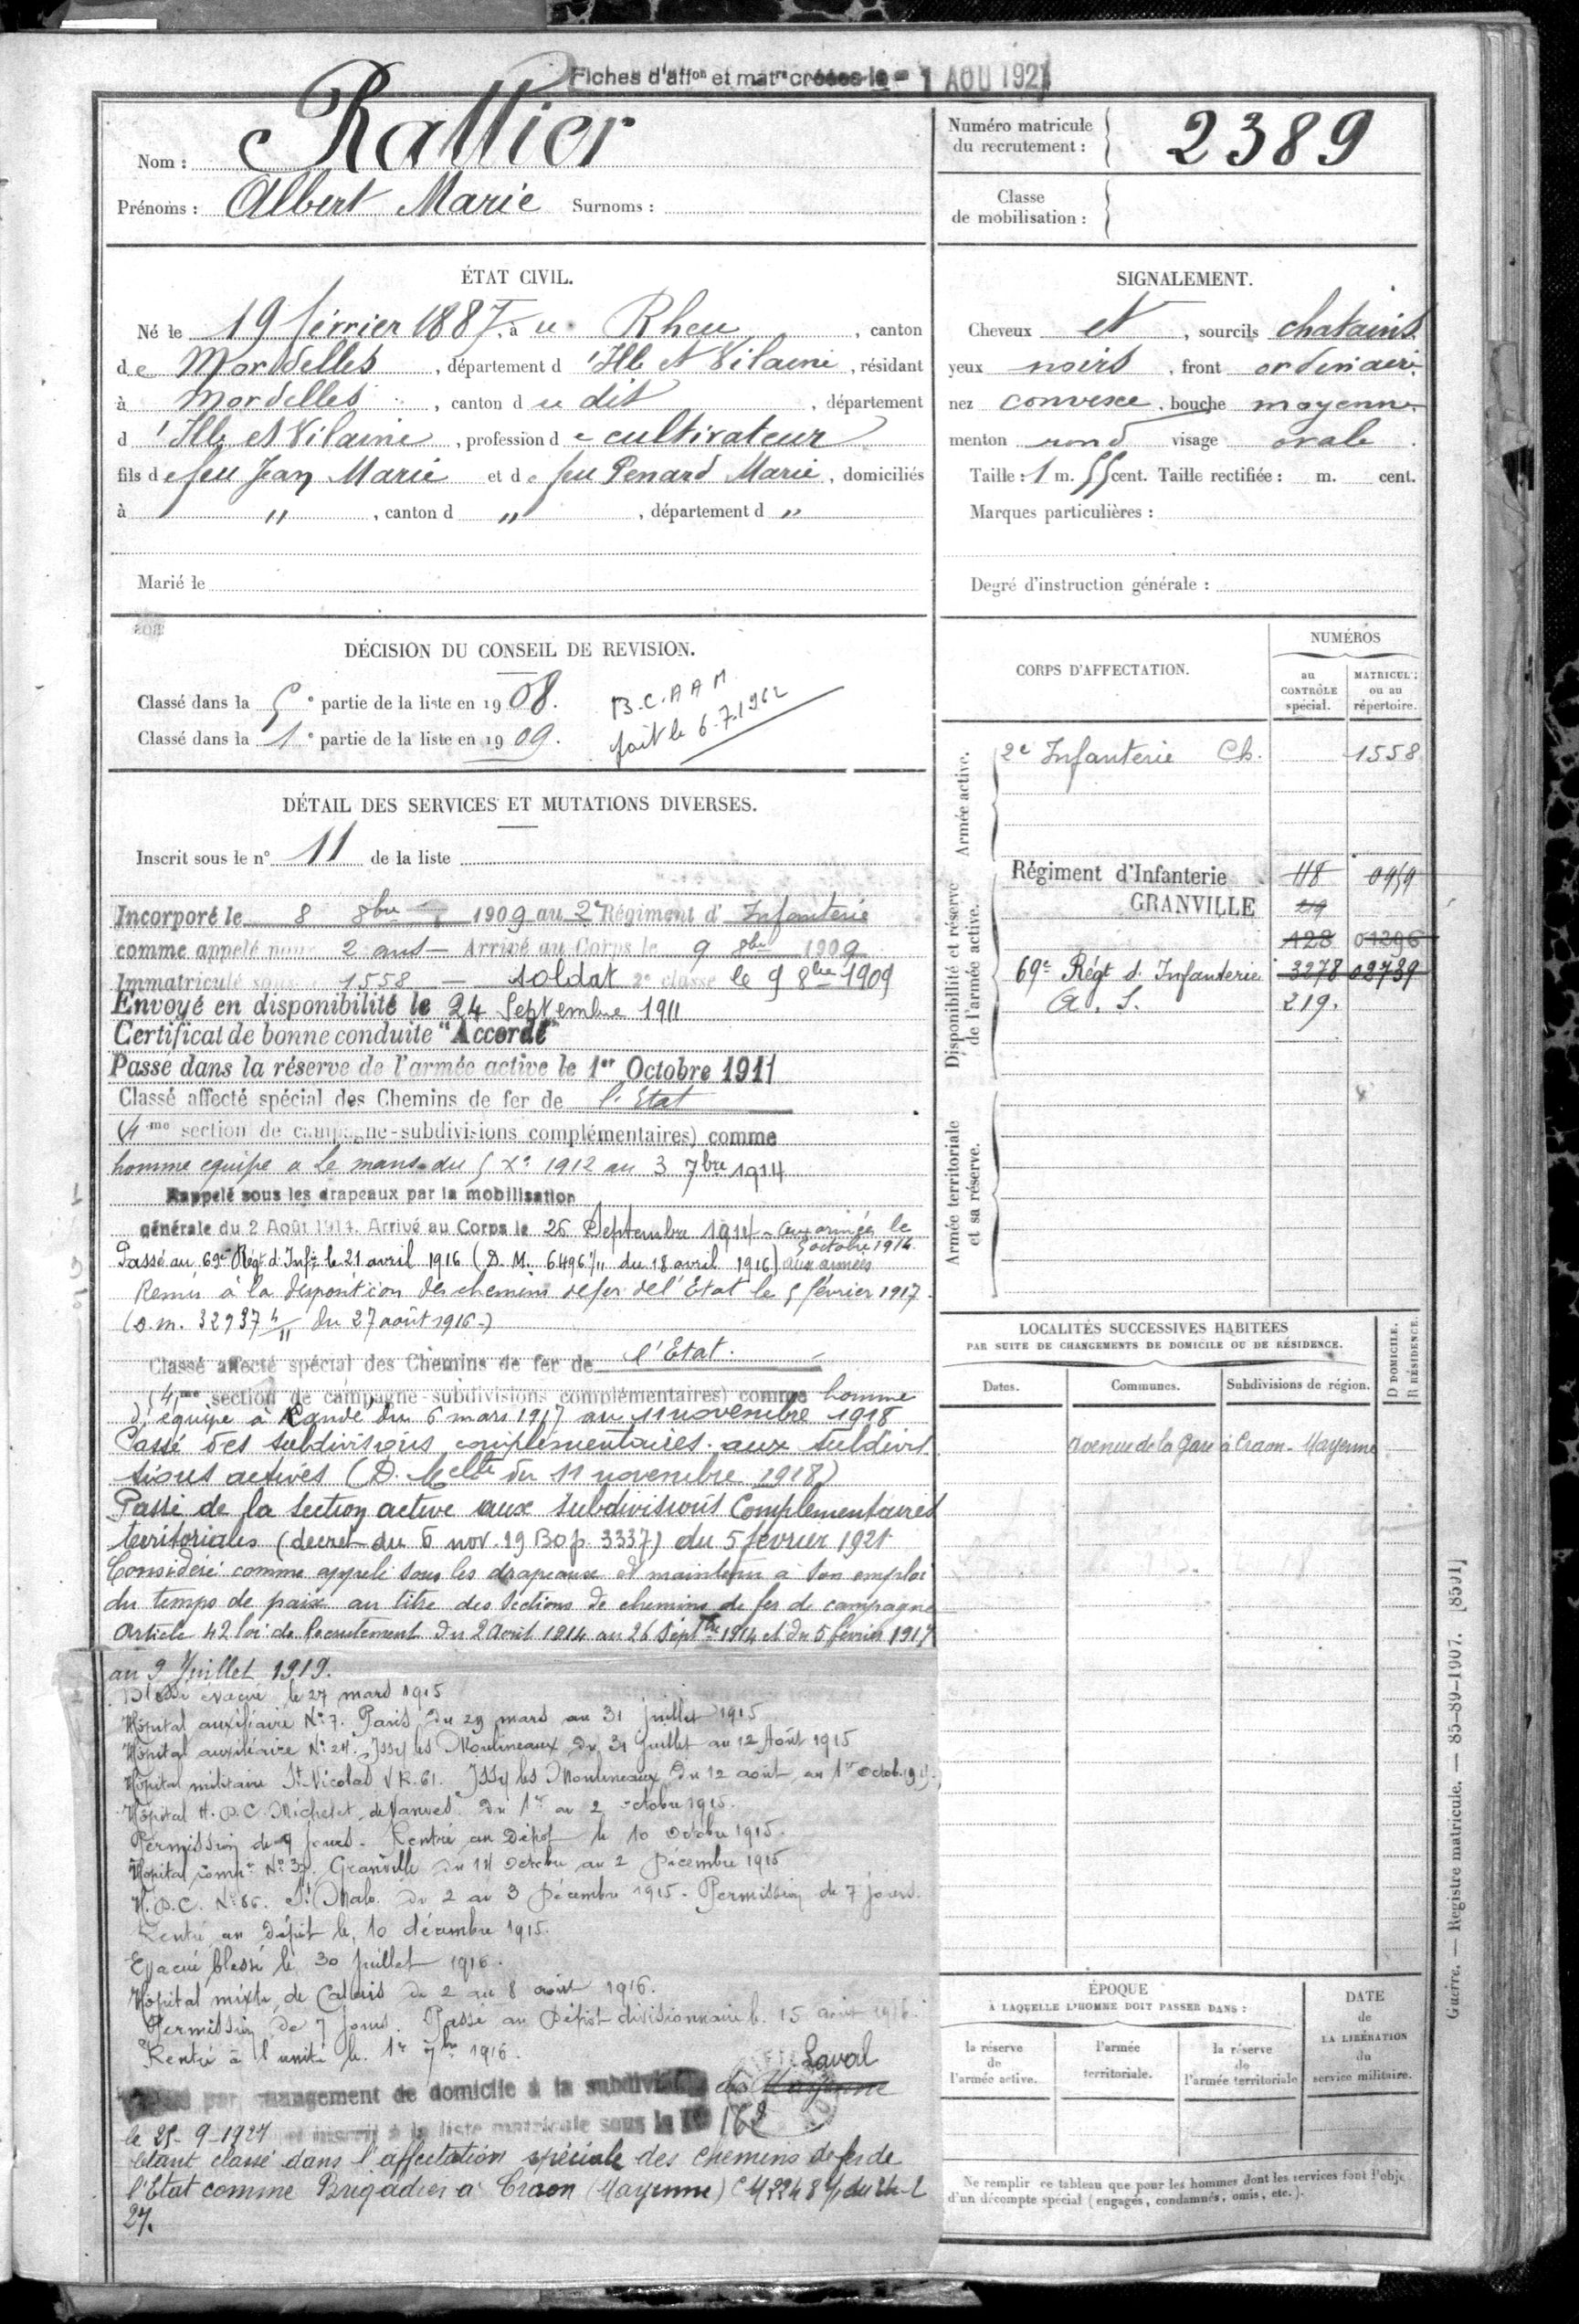 Fiches d'affon et matre créées le - 1 AOU 1927
Nom : Rattier
Prénoms : Albert Marie Surnoms :
Numéro matricule du recrutement : 2389
Classe de mobilisation :
ÉTAT CIVIL.
Né le 19 février 1887, à u Rheu, canton
de Mordelles, département d 'Ille et Vilaine, résidant
à Mordelles, canton d u dit, département
d 'Ille et Vilaine, profession d e cultivateur
fils de feu Jean Marie et de feu Penard Marie, domiciliés
à " , canton d " , département d "
Marié le
SIGNALEMENT.
Cheveux et, sourcils chatains
yeux noirs, front ordinaire
nez convexe, bouche moyenne
menton rond visage ovale.
Taille : 1 m. 55 cent. Taille rectifiée : m. cent.
Marques particulières :
Degré d'instruction générale :
DÉCISION DU CONSEIL DE REVISION.
Classé dans la 5e partie de la liste en 1908.
Classé dans la 1e partie de la liste en 1909.
B.C.A A M
fait le 6.7.1962
DÉTAIL DES SERVICES ET MUTATIONS DIVERSES.
Inscrit sous le n° 11 de la liste
Incorporé le 8 8bre 1909 au 2e Régiment d' Infanterie
comme appelé pour 2 ans - Arrivé au Corps le 9 8bre 1909
Immatriculé sous 1558 - soldat 2e classe le 9 8bre 1909
Envoyé en disponibilité le 24 Septembre 1911
Certificat de bonne conduite "Accordé"
Passé dans la réserve de l'armée active le 1er Octobre 1911
Classé affecté spécial des Chemins de fer de l'Etat
(4me section de campagne-subdivisions complémentaires) comme
homme equipe a Le mans du 5 Xe 1912 au 3 7bre 1914
Rappelé sous les drapeaux par la mobilisation
générale du 2 Août 1914. Arrivé au Corps le 26 Septembre 1914 - aux armées le
5 octobre 1914.
Passé au 69e Régt d'Infie le 21 avril 1916 (D.M. 6496 1/11 du 18 avril 1916) aux armées
Remis à la disposition des chemins de fer de l'Etat le 5 février 1917.
(D.M. 32937 du 27 août 1916-)
Classé affecté spécial des Chemins de fer de l'Etat.
(4me section de campagne-subdivisions complémentaires) comme homme
d'équipe à Candé du 6 mars 1917 au 11 novembre 1918
Passé des subdivisions complémentaires aux subdivi
sions actives (D. Melle du 11 novembre 1918)
Passé de la section active aux subdivisions Complémentaires
territoriales (decret du 6 nov. 19 BO p. 3337) du 5 février 1921
Considéré comme appelé sous les drapeaux et maintenu à son emploi
du temps de paix au titre des sections de chemins de fer de campagne
Article 42 loi de Recrutement du 2 Août 1914 au 26 Septbre 1914 et du 5 février 1917
au 9 Juillet 1919.
Blessé évacué le 27 mars 1915
Hôpital auxiliaire No 7. Paris du 29 mars au 31 juillet 1915
Hôpital auxiliaire No 24. Issy les Moulineaux du 31 juillet au 12 Août 1915
Hôpital militaire St Nicolas V.R. 61. Issy les Moulineaux du 12 août au 1er Octob. 1915.
Hôpital H.D.C. Michelet, de Vanves du 1er au 2 octobre 1915.
Permission de 7 jours - Rentré au Dépôt le 10 Octobre 1915.
Hôpital No 37. Granville du 14 Octobre au 2 Décembre 1915
H.D.C. No 86. St Malo. du 2 au 3 Décembre 1915 - Permission de 7 jours.
Rentré au dépôt le 10 décembre 1915.
Evacué blessé le 30 juillet 1916.
Hôpital mixte de Calais du 2 au 8 août 1916.
Permission de 7 jours. Passé au Dépôt divisionnaire le 15 août 1916.
Rentré à l'unité le 1er 7bre 1916.
par changement de domicile à la subdivision de Mayenne Laval
le 25-9-1927 et inscrit à la liste matricule sous le No 162
Etant classé dans l'affectation spéciale des chemins de fer de
l'Etat comme Brigadier à Craon (Mayenne) du 24-2
27.
CORPS D'AFFECTATION.
NUMÉROS
au CONTRÔLE spécial.
MATRICULE ou au répertoire.
Armée active.
2e Infanterie Ch. 1558
Disponibilité et réserve de l'armée active.
Régiment d'Infanterie 118 0959
GRANVILLE 219
128 01396
69e Régt d. Infanterie 3278 02739
A. S. 219.
Armée territoriale et sa réserve.
LOCALITÉS SUCCESSIVES HABITÉES
PAR SUITE DE CHANGEMENTS DE DOMICILE OU DE RÉSIDENCE.
Dates. Communes. Subdivisions de région. D DOMICILE. R RÉSIDENCE.
avenue de la Gare à Craon - Mayenne
ÉPOQUE
À LAQUELLE L'HOMME DOIT PASSER DANS :
la réserve de l'armée active.
l'armée territoriale.
la réserve de l'armée territoriale
DATE de LA LIBÉRATION du service militaire.
Ne remplir ce tableau que pour les hommes dont les services font l'obje
d'un décompte spécial (engagés, condamnés, omis, etc.).
Guerre. — Registre matricule. — 85-89-1907. [8591]